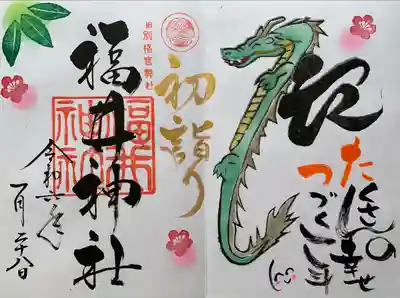 たくさんの幸せ
初詣り
旧別格官幣社
福井神社
福井神社
令和六年
一月二十八日